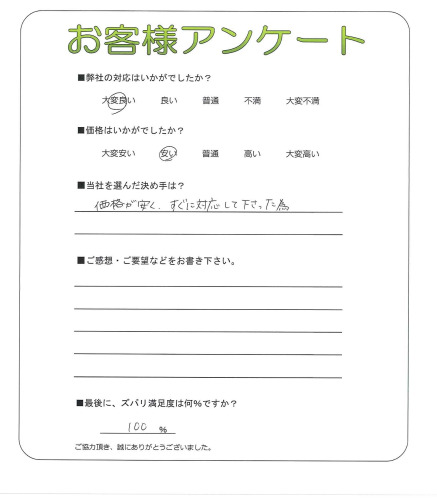 お客様アンケート
■弊社の対応はいかがでしたか？
大変良い 良い 普通 不満 大変不満
■価格はいかがでしたか？
大変安い 安い 普通 高い 大変高い
■当社を選んだ決め手は？
価格が安く、すぐに対応して下さった為
■ご感想・ご要望などをお書き下さい。
■最後に、ズバリ満足度は何%ですか？
100 %
ご協力頂き、誠にありがとうございました。